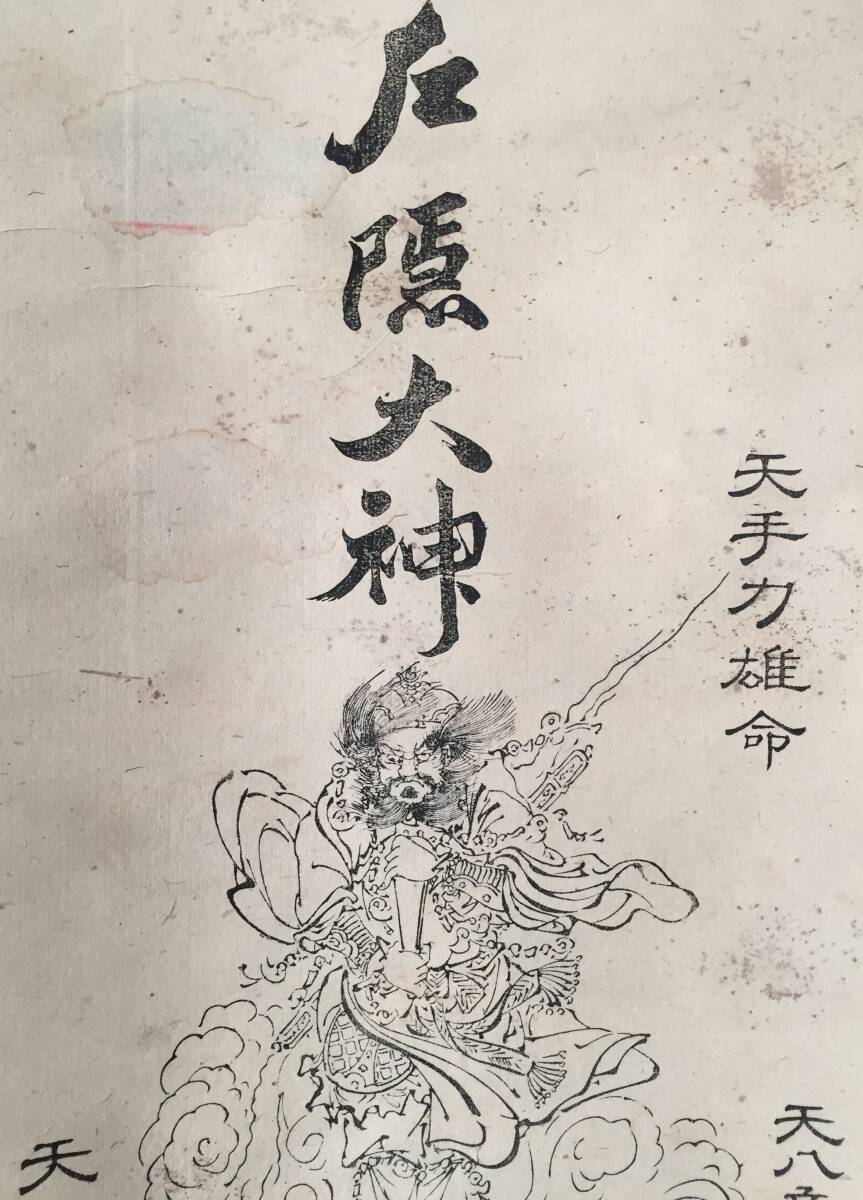 戸隠大神
天手力雄命
天八
天